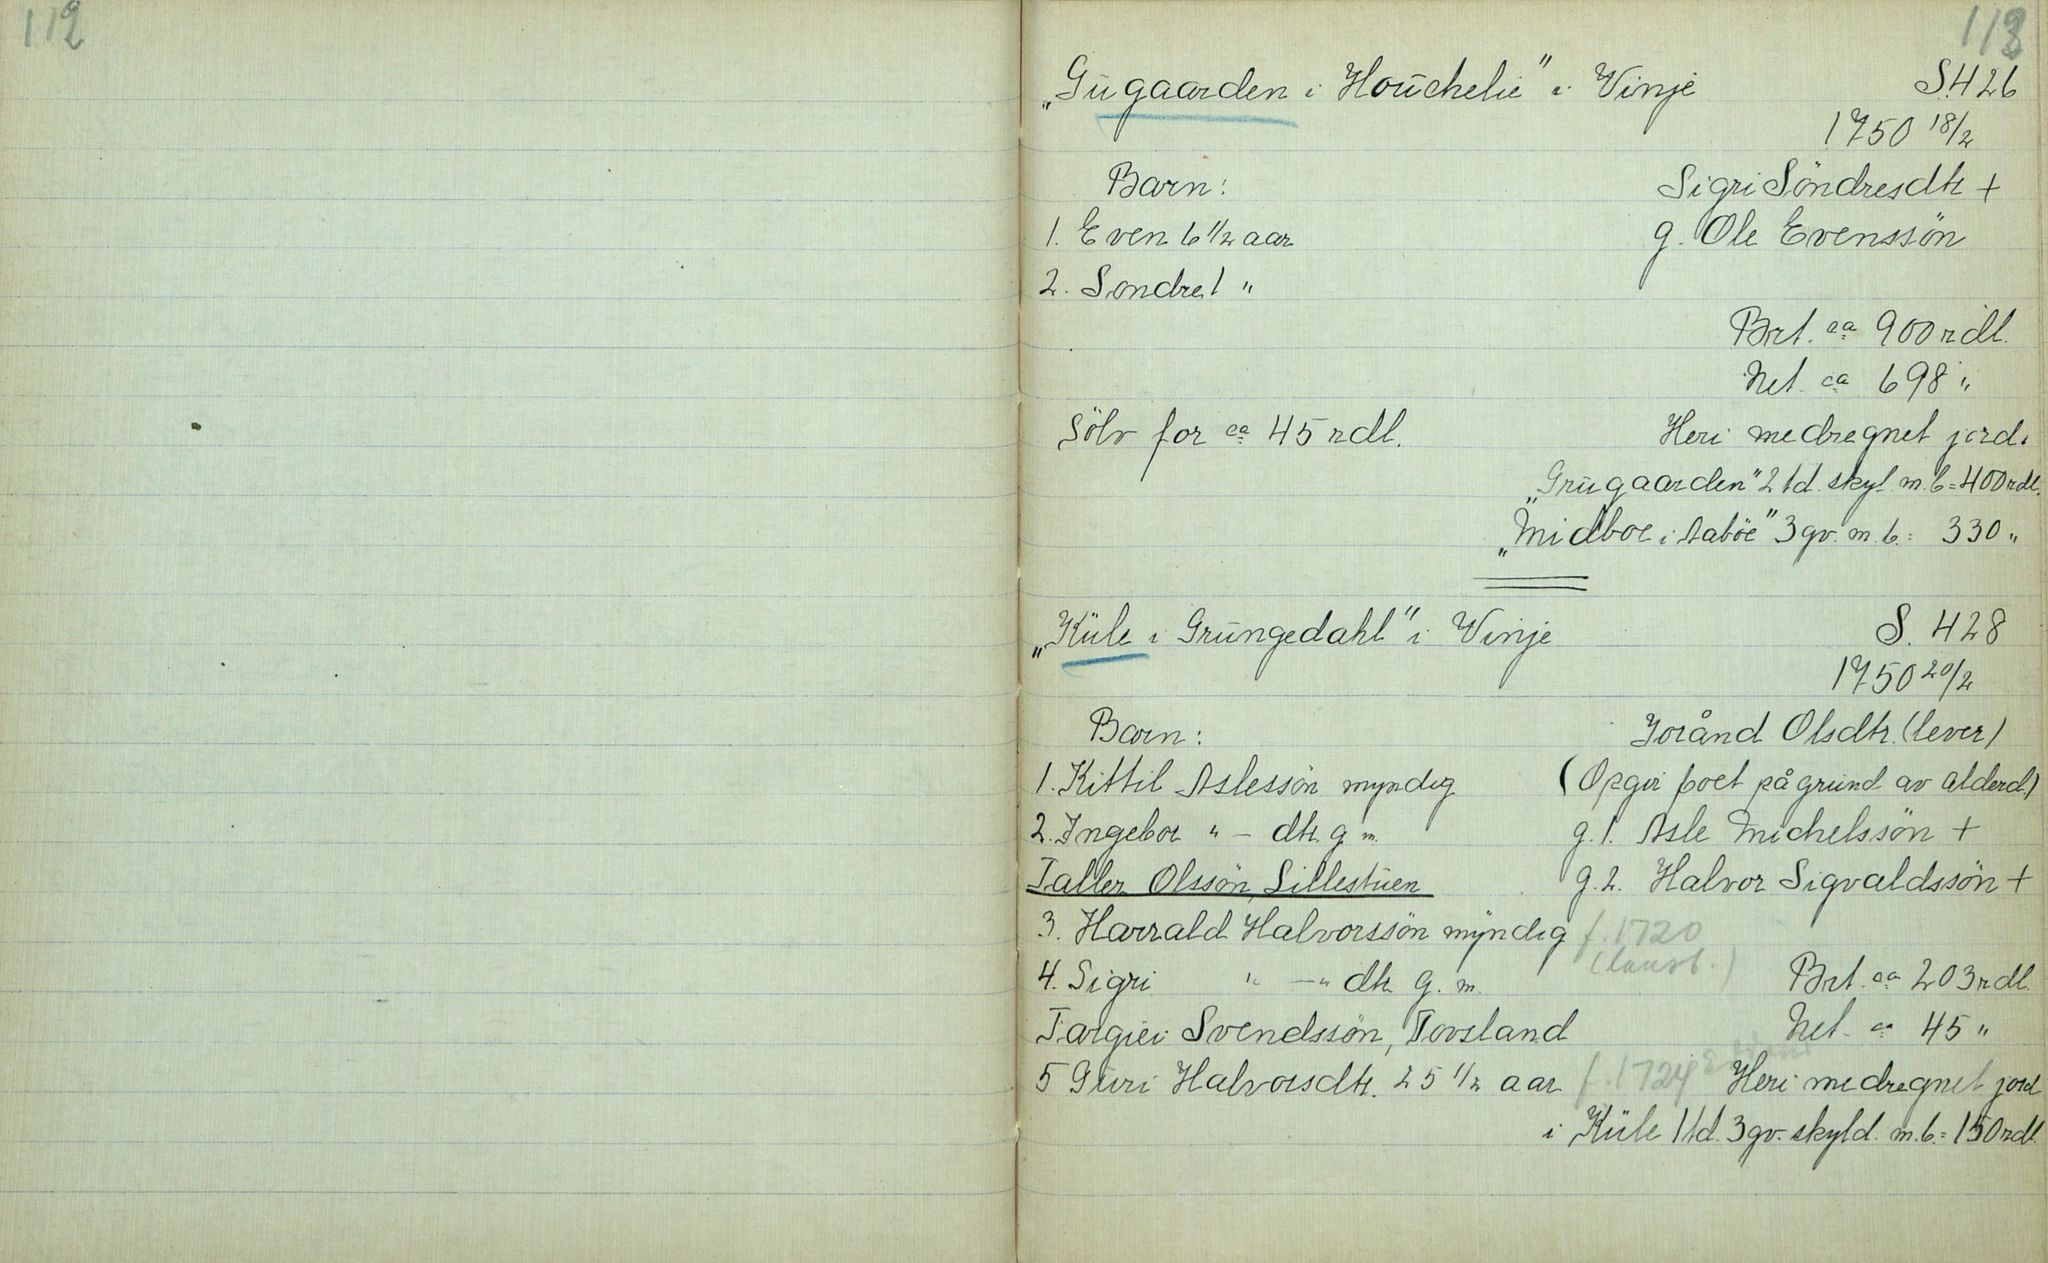 112
113
„Gugaarden i Houchelie" i Vinje S. 426
1750 18/2
Barn: Sigri Söndresdtr +
1. Even 6 1/2 aar g. Ole Evenssön
2. Sondre 1 "
Brt. ca 900 rdl.
Net. ca 698 "
Sölv for ca 45 rdl. Heri medregnet jord i
„Grugaarden" 2 td. skyl. m. b = 400 rdl.
„Midboe i Aaböe" 3 gv. m. b. = 330 "
„Kule i Grungedahl" i Vinje S. 428
1750 20/2
Barn: Joránd Olsdtr. (lever)
1. Kittil Aslessön myndig (Opgir boet på grund av alderd.)
2. Ingebor " - dtr. g m. g. 1. Asle Michelssön +
Taller Olssön, Lillestuen g. 2. Halvor Sigvaldssön +
3. Harrald Halvorssön myndig f. 1720
4. Sigri " - " dtr g. m. Brt. ca 203 rdl.
Targiei Svendssön, Tovsland Net. ca 45 "
5 Guri Halvorsdtr. 25 1/2 aar f. 1724 Heri medregnet jord
i Kule 1 td. 3 gv. skyld. m. b. = 150 rdl.